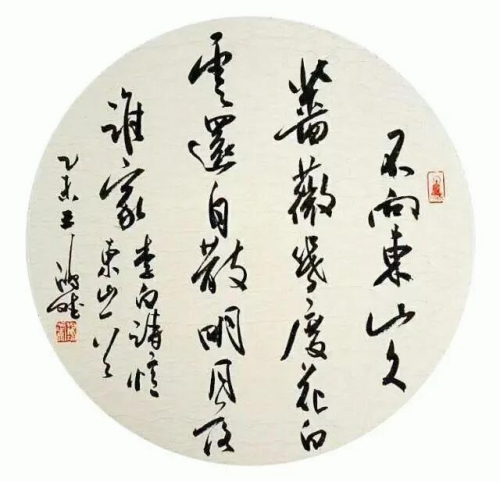 不向東山久
薔薇幾度花白
雲還自散明月落
誰家
李白詩憶
東山
乙未